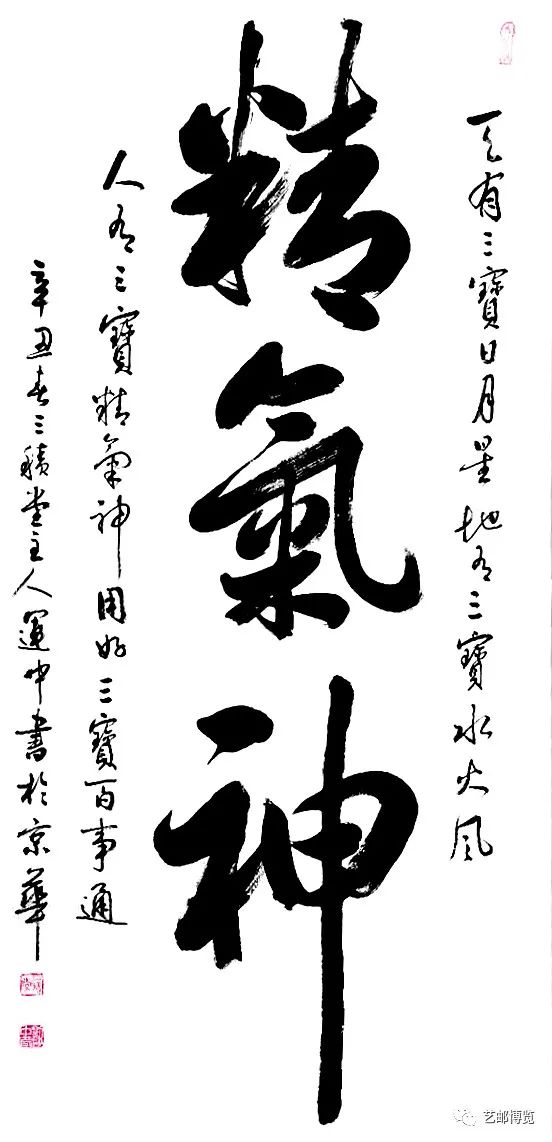 天有三寶日月星地有三寶水火風
精氣神
人有三寶精氣神用好三寶百事通
辛丑春三積堂主人運中書於京華
艺邮博览